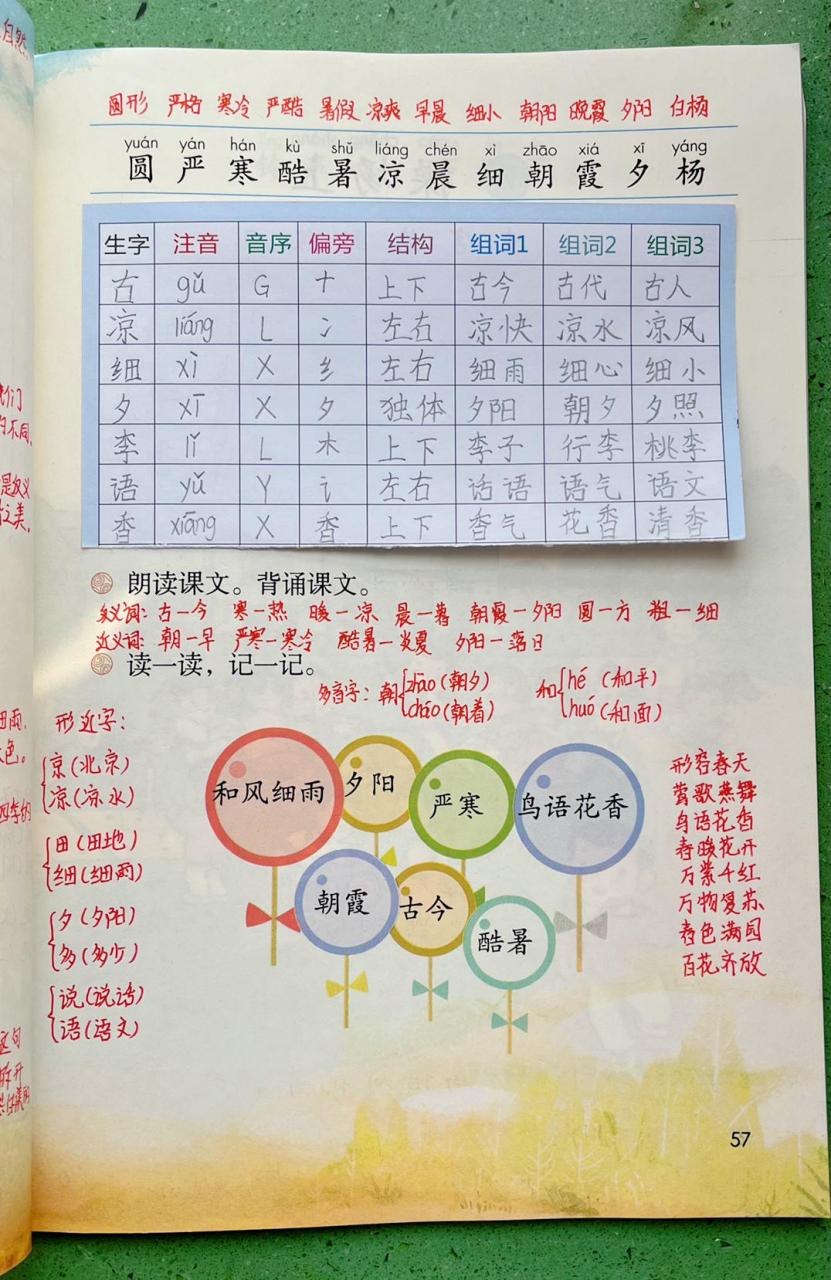 自然
圆形 严格 寒冷 严酷 暑假 凉爽 早晨 细小 朝阳 晚霞 夕阳 白杨
yuán yán hán kù shǔ liáng chén xì zhāo xiá xī yáng
圆 严 寒 酷 暑 凉 晨 细 朝 霞 夕 杨
生字 注音 音序 偏旁 结构 组词1 组词2 组词3
古 gǔ G 十 上下 古今 古代 古人
凉 liáng L 冫 左右 凉快 凉水 凉风
细 xì X 纟 左右 细雨 细心 细小
夕 xī X 夕 独体 夕阳 朝夕 夕照
李 lǐ L 木 上下 李子 行李 桃李
语 yǔ Y 讠 左右 话语 语气 语文
香 xiāng X 香 上下 香气 花香 清香
朗读课文。背诵课文。
反义词: 古一今 寒一热 暖一凉 晨一暮 朝霞一夕阳 圆一方 粗一细
近义词: 朝一早 严寒一寒冷 酷暑一炎夏 夕阳一落日
读一读，记一记。
多音字: 朝 zhāo(朝夕) cháo(朝着) 和 hé (和平) huó(和面)
形近字:
京(北京)
凉(凉水)
田(田地)
细(细雨)
夕(夕阳)
多(多少)
说(说话)
语(语文)
和风细雨 夕阳 严寒 鸟语花香
朝霞 古今 酷暑
形容春天
莺歌燕舞
鸟语花香
春暖花开
万紫千红
万物复苏
春色满园
百花齐放
们
的不同,
是反义
之美。
细雨,
色。
四字的
这句
57